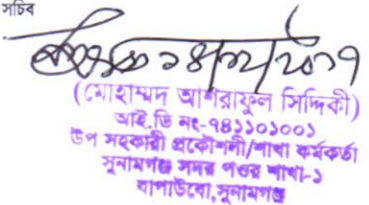 সচিব
(মোহাম্মদ আশরাফুল সিদ্দিকী)
আই.ডি নং-৭৪১১০১০০১
উপ সহকারী প্রকৌশলী/শাখা কর্মকর্তা
সুনামগঞ্জ সদর পওর শাখা-১
বাপাউবো,সুনামগঞ্জ